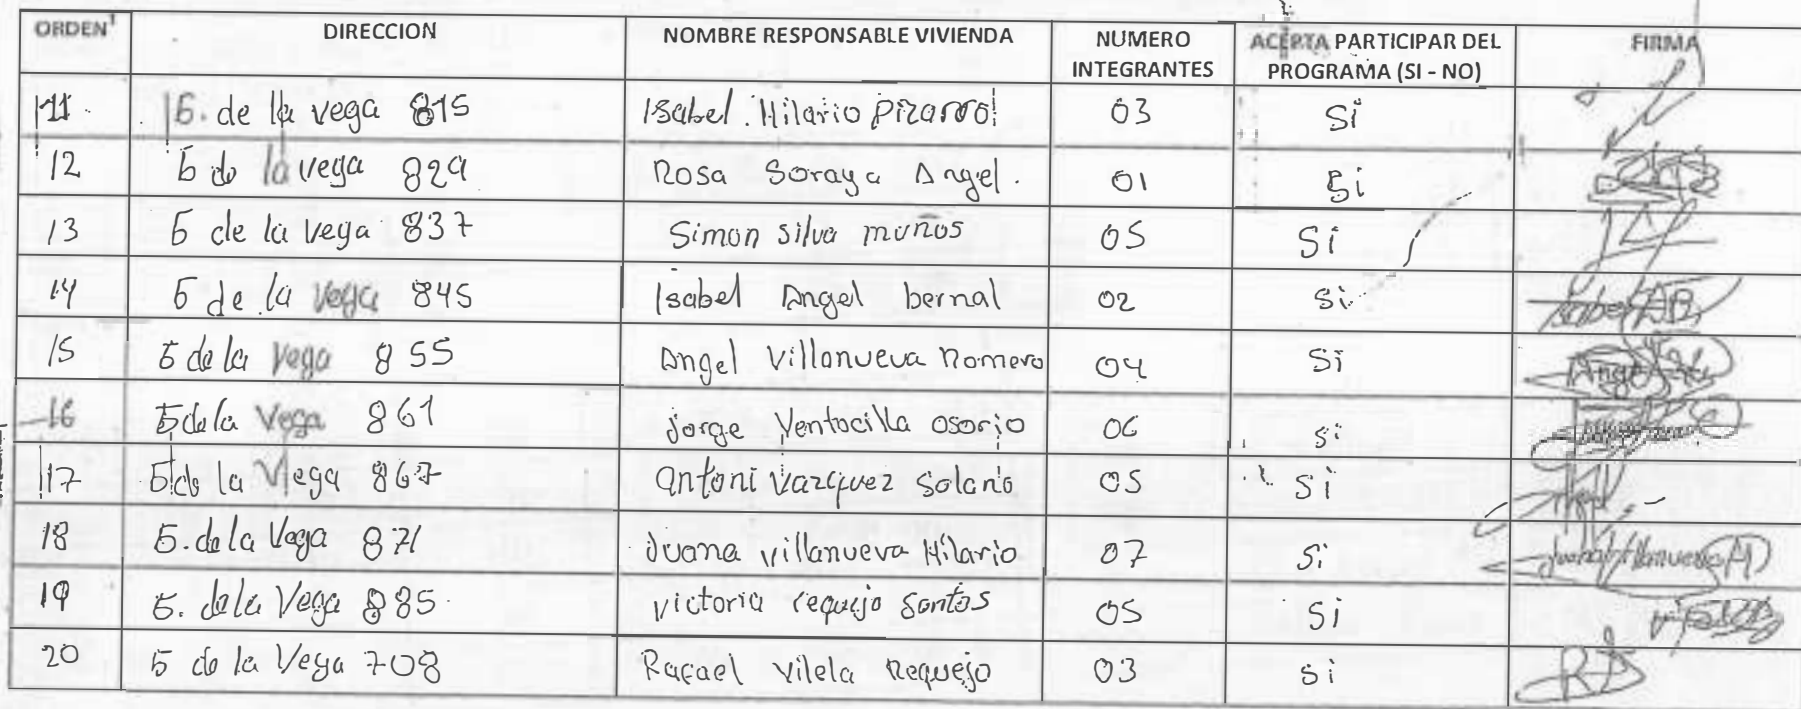 ORDEN DIRECCION NOMBRE RESPONSABLE VIVIENDA NUMERO INTEGRANTES ACEPTA PARTICIPAR DEL PROGRAMA (SI - NO) FIRMA
11 G. de la vega 815 Isabel Hilario Pizarro 03 Si
12 G de la vega 829 Rosa Soraya Angel. 01 Si
13 G de la vega 837 Simon Silva muños 05 Si
14 G de la Vega 845 Isabel Angel bernal 02 Si Isabel AB
15 G de la Vega 855 Angel Villanueva Romero 04 Si
16 G de la Vega 861 jorge Ventocilla osorio 06 si
17 G de la Vega 867 antoni Vazquez Solano 05 si
18 G. de la Vega 871 Juana Villanueva Hilario 07 Si Juana Villanueva H
19 G. de la Vega 885. victoria requejo Santos 05 Si
20 G de la Vega 708 Rafael Vilela Requejo 03 si